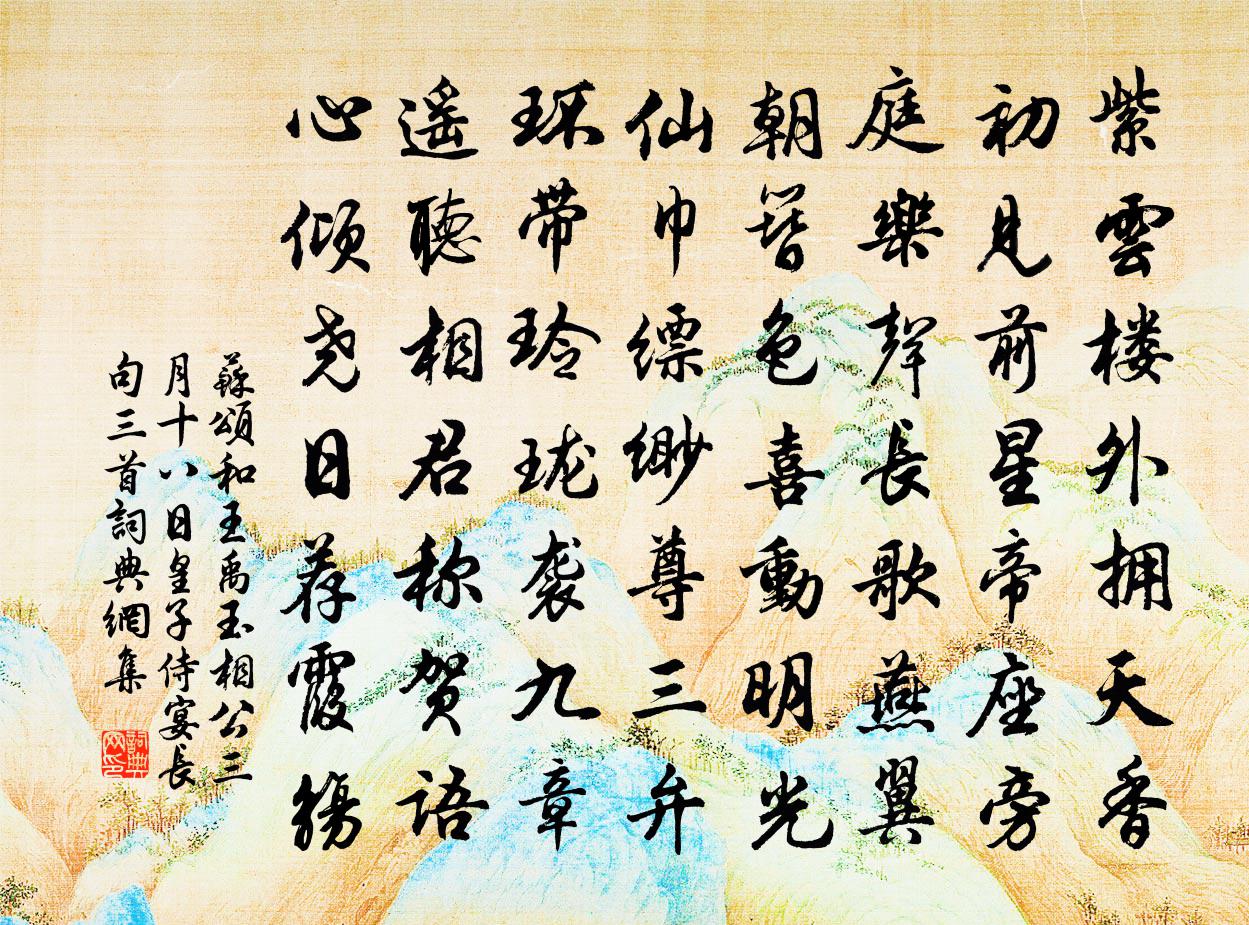 紫雲楼外拥天香
初見前星帝座旁
庭樂聲長歌燕翼
朝簪色喜動明光
仙巾縹緲尊三弁
环带玲珑袭九章
遥聽相君称贺语
心倾尧日荐霞觴
蘇頌和王禹玉相公三
月十八日皇子侍宴長
句三首詞典網集